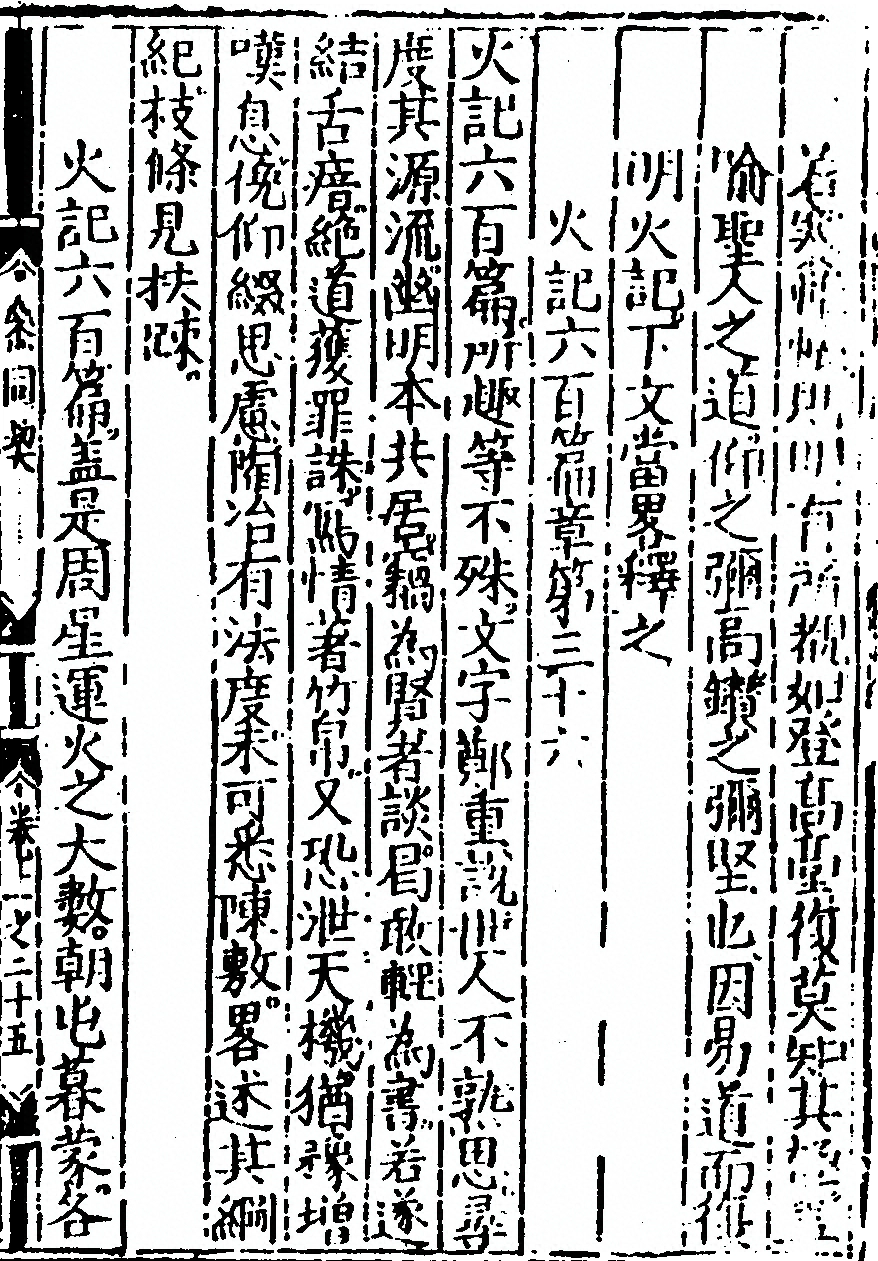 有所覩如登高臺復莫知其
喻聖人之道仰之彌高鑽之彌堅也因易道而後
明火記下文當畧釋之
火記六百篇章第三十六
火記六百篇所趣等不殊文字鄭重說世人不熟思尋
度其源流幽明本共居竊為賢者談曷敢輕為書若遂
結舌瘖絶道獲罪誅寫情著竹帛又恐泄天機猶豫增
嘆息俛仰綴思慮陶冶有法度未可悉陳敷畧述其綱
紀枝條見扶踈
火記六百篇盖是周星運火之大數朝屯暮蒙各
參同契
卷七
之二十五